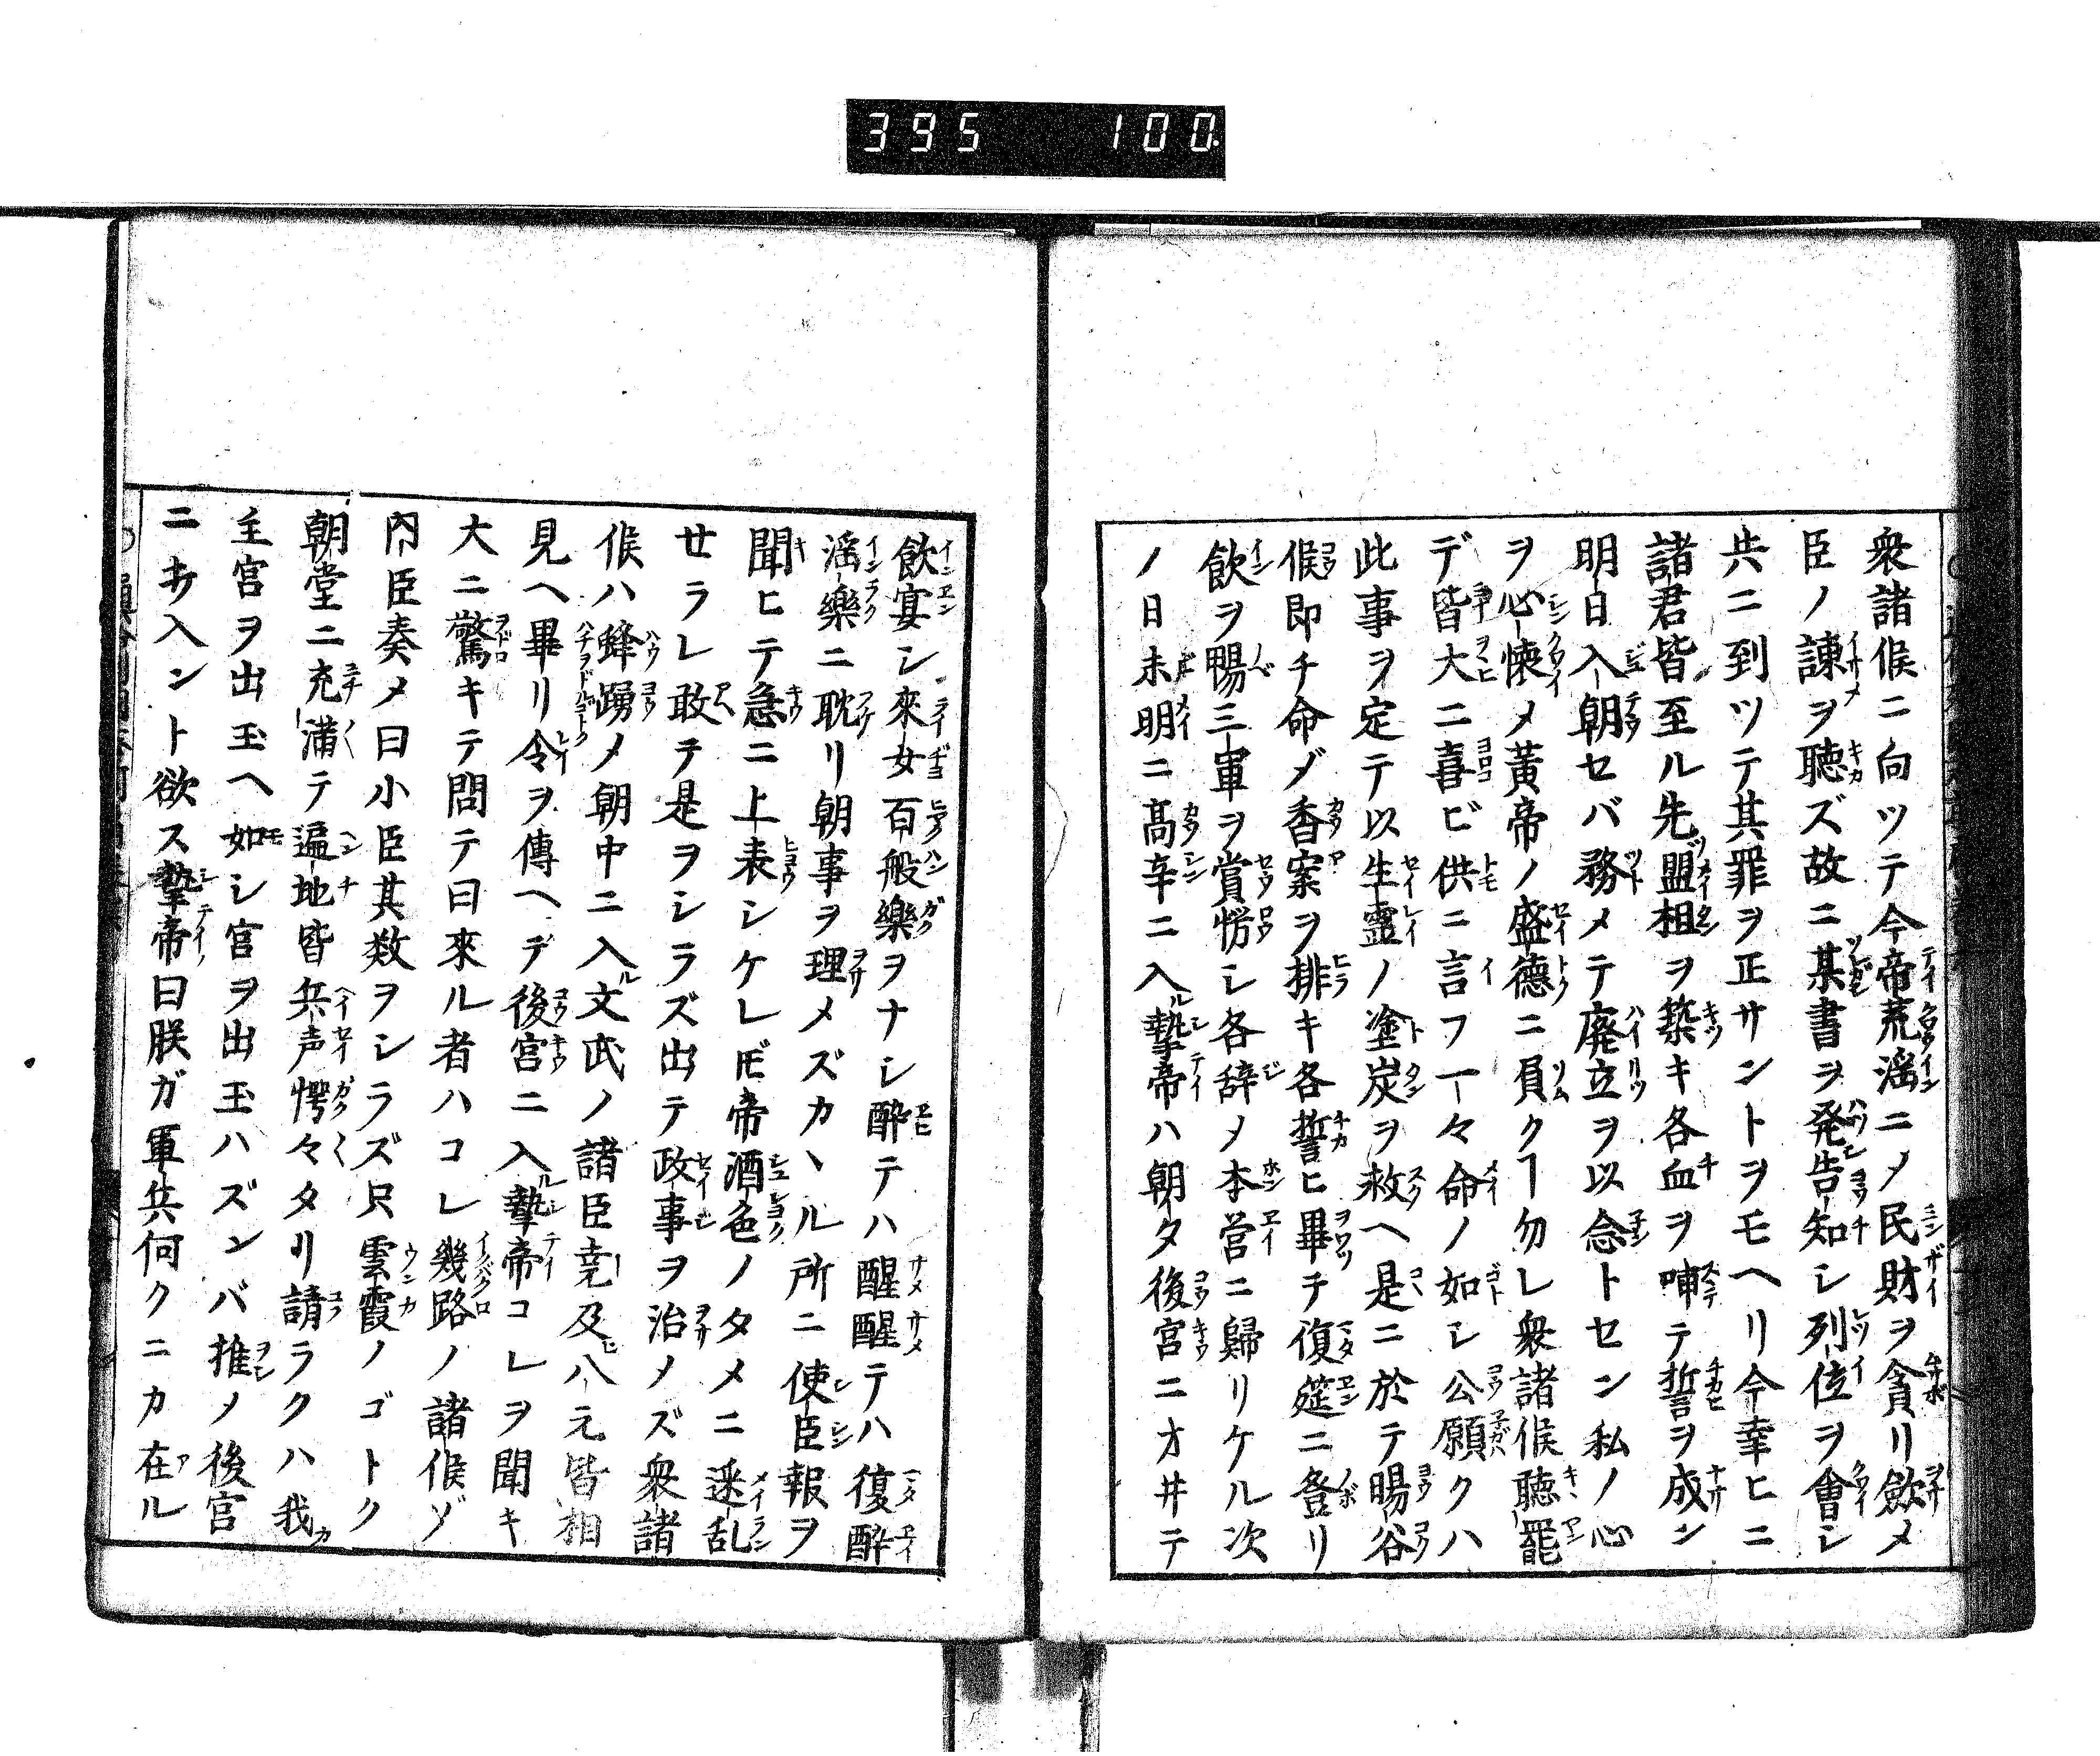 395 100.
衆諸侯ニ向ツテ今帝荒滛ニメ民財ヲ貪リ歛メ
臣ノ諫ヲ聴ズ故ニ某書ヲ発告知シ列位ヲ會シ
共ニ到ツテ其罪ヲ正サントヲモヘリ今幸ヒニ
諸君皆至ル先盟相ヲ築キ各血ヲ喢テ誓ヲ成ン
明日入朝セバ務メテ廃立ヲ以念トセン私ノ心
ヲ心懐メ黄帝ノ盛德ニ負クヿ勿レ衆諸侯聴罷
デ皆大ニ喜ビ供ニ言フ一々命ノ如シ公願クハ
此事ヲ定テ以生靈ノ塗炭ヲ救ヘ是ニ於テ暘谷
侯即チ命ゾ香案ヲ排キ各誓ヒ畢テ復筵ニ登リ
飲ヲ暢三軍ヲ賞愣シ各辞メ本営ニ歸リケル次
ノ日未明ニ髙辛ニ入摯帝ハ朝タ後宮ニオ井テ
飲宴シ來女百般樂ヲナシ酔テハ醒醒テハ復酔
滛樂ニ耽リ朝事ヲ理メズカヽル所ニ使臣報ヲ
聞ヒテ急ニ上表シケレ𪜈帝酒色ノタメニ迷乱
せラレ敢テ是ヲシラズ出テ政事ヲ治メズ衆諸
侯ハ蜂踴メ朝中ニ入文武ノ諸臣尭及八元皆相
見ヘ畢リ令ヲ傳ヘデ後宮ニ入摯帝コレヲ聞キ
大ニ驚キテ問テ曰來ル者ハコレ幾路ノ諸侯ゾ
内臣奏メ曰小臣其数ヲシラズ只雲霞ノゴトク
朝堂ニ充滿テ遍地皆兵声愕々タリ請ラクハ我
主宮ヲ出玉ヘ如シ宮ヲ出玉ハズンバ推メ後宮
ニ打入ント欲ス摯帝曰朕ガ軍兵何クニカ在ル